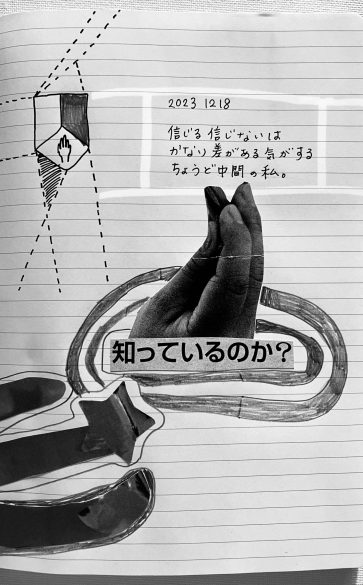 2023 12 18
信じる 信じないは
かなり 差がある 気がする
ちょうど 中間の私。
知っているのか?